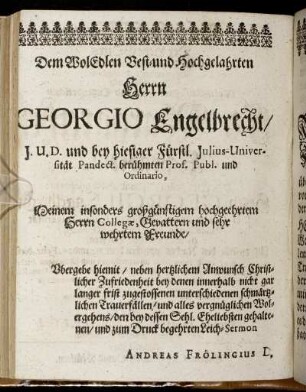 Dem WolEdlen Vest-und Hochgelahrten
Herrn
GEORGIO Engelbrecht/
J. U. D. und bey hiesiger Fürstl. Julius-Univer-
sität Pandect. berühmten Prof. Publ. und
Ordinario,
Meinem insonders großgünstigem hochgeehrtem
Herrn Collegæ, Gevattern und sehr
wehrtem Freunde/
Ubergebe hiemit / neben hertzlichem Anwunsch Christ-
licher Zufriedenheit bey denen innerhalb nicht gar
langer frist zugestossenen unterschiedenen schmärtz-
lichen Trauerfällen/ und alles vergnüglichen Wol-
ergehens/ den bey dessen Sehl. Eheliebsten gehalte-
nen/ und zum Druck begehrten Leich-Sermon
ANDREAS FRÖLINGIUS L.